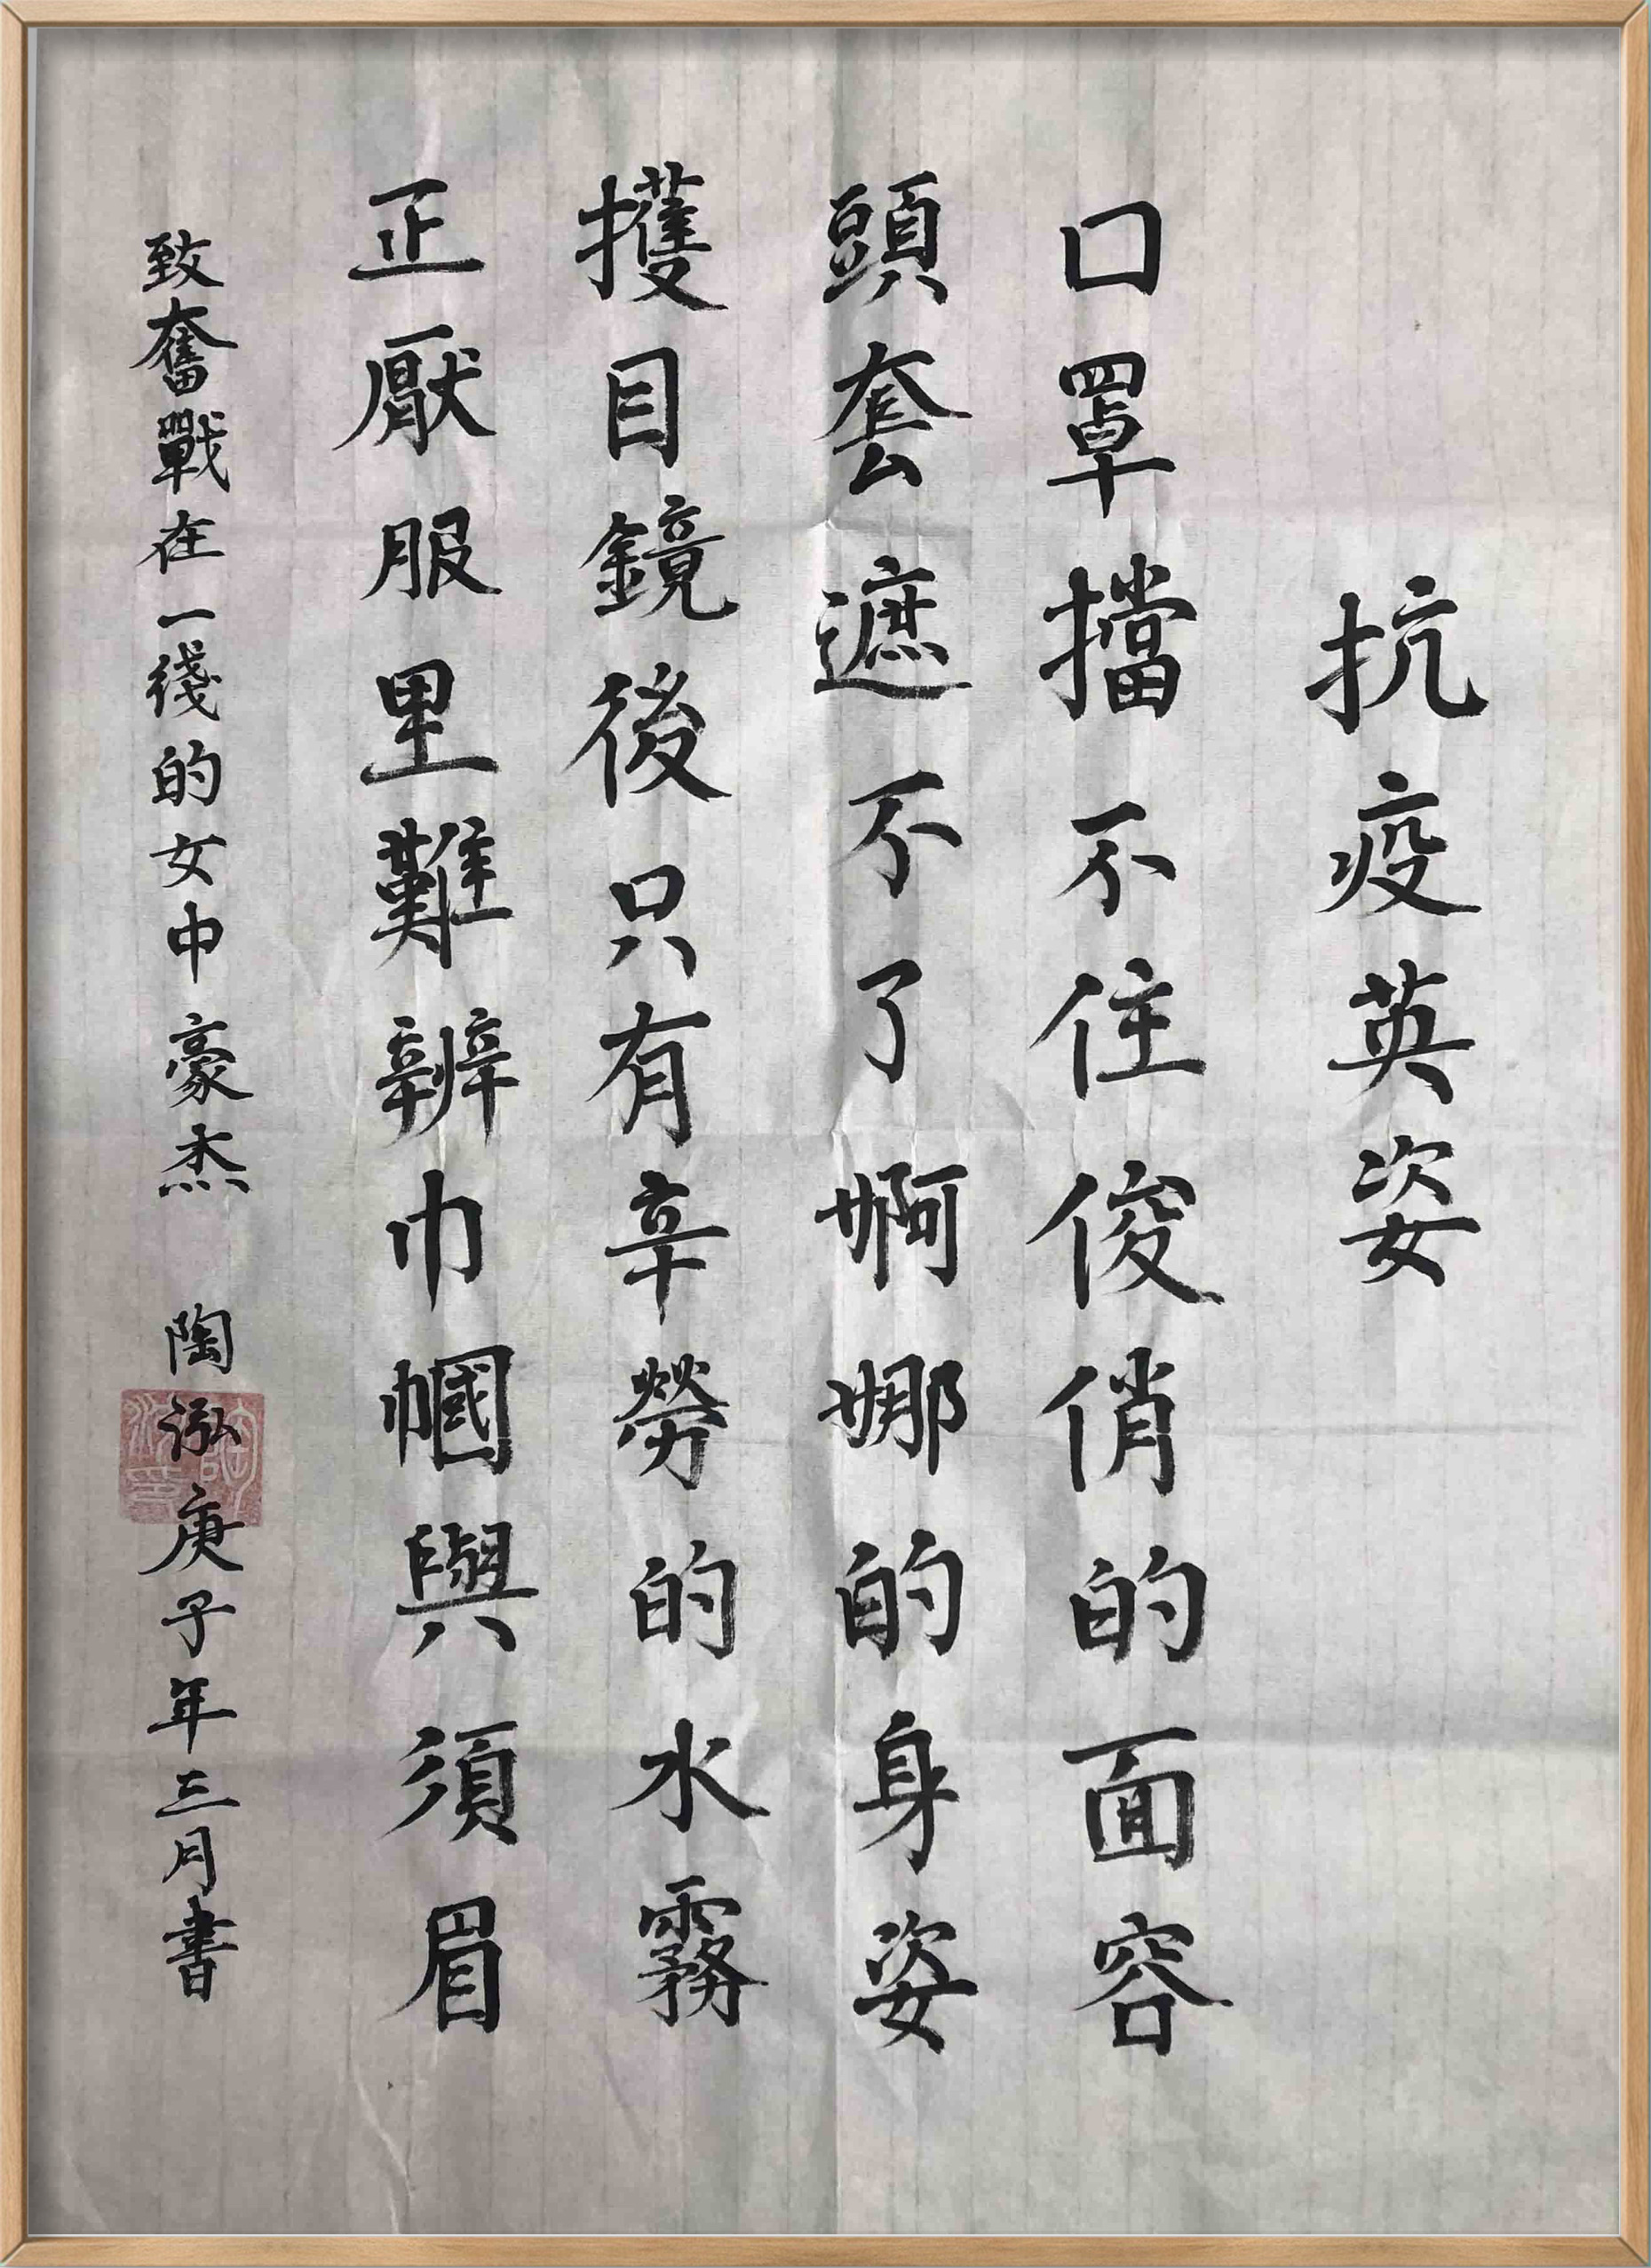 抗疫英姿
口罩擋不住俊俏的面容
頭套遮不了婀娜的身姿
擭目鏡後只有辛勞的水霧
正厭服里難辨巾幗與須眉
致奮戰在一綫的女中豪杰 陶泓庚子年三月書